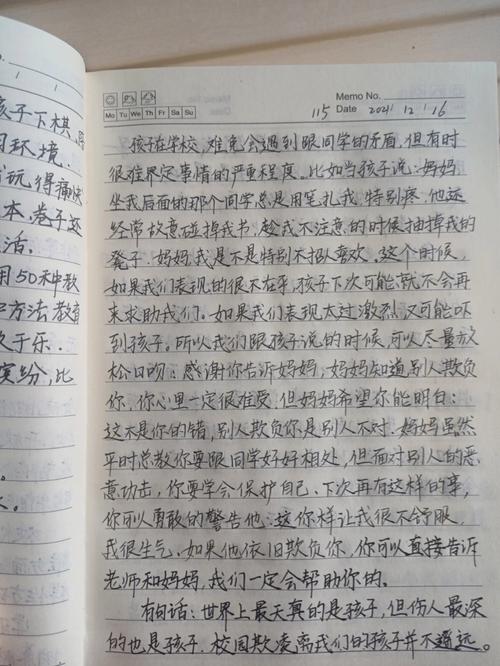 孩子下棋,
环境.
玩得痛快
本,卷子还
活.
用50种教
方法,教育
于乐.
缤纷,比
Mo Tu We Th Fr Sa Su
Memo No.
115 Date 2021.12.16
孩子在学校,难免会遇到跟同学的矛盾,但有时
很难界定事情的严重程度。比如当孩子说:妈妈,
坐我后面的那个同学总是用笔扎我,特别疼.他还
经常故意碰掉我书,趁我不注意的时候抽掉我的
凳子,妈妈,我是不是特别不招人喜欢。这个时候,
如果我们表现的很不在乎,孩子下次可能就不会再
来求助我们。如果我们表现太过激烈,又可能吓
到孩子。所以我们跟孩子说的时候,可以尽量放
松口吻:感谢你告诉妈妈,妈妈知道,别人欺负
你,你心里一定很难受,但妈妈希望你能明白:
这不是你的错,别人欺负你是别人不对.妈妈虽然
平时总教你要跟同学好好相处,但面对别人的恶
意功击,你要学会保护自己.下次再有这样的事,
你可以勇敢的警告他:这你样让我很不舒服,
我很生气.如果他依旧欺负你,你可以直接告诉
老师和妈妈,我们一定会帮助你的.
有句话:世界上最天真的是孩子,但伤人最深
的也是孩子.校园欺凌离我们的孩子并不遥远。